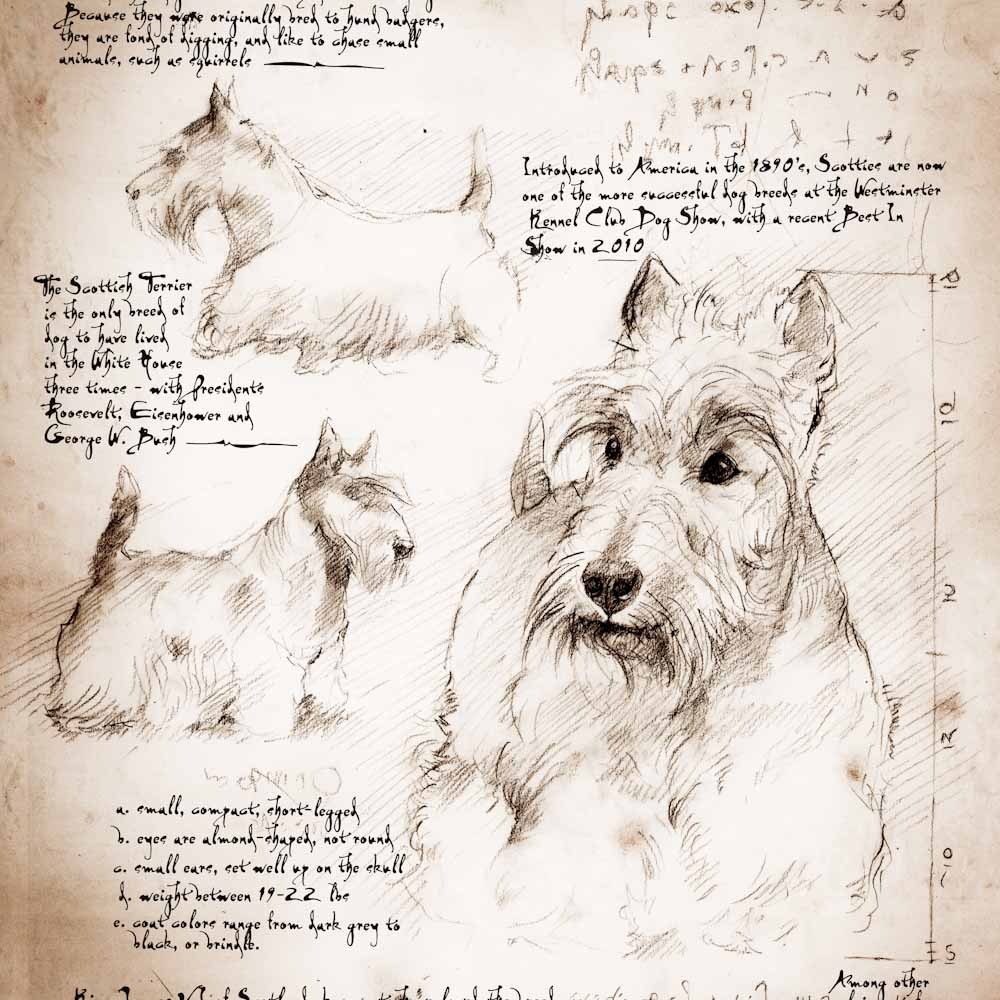 Because they were originally bred to hund badgers,
they are fond of digging, and like to chase small
animals, such as squirrels
Introduced to America in the 1890's, Scotties are now
one of the more successful dog breeds at the Westminster
Kennel Club Dog Show, with a recent Best In
Show in 2010
The Scottish Terrier
is the only breed of
dog to have lived
in the White House
three times - with Presidents
Roosevelt, Eisenhower and
George W. Bush
a. small, compact, short-legged
b. eyes are almond-shaped, not round
c. small ears, set well up on the skull
d. weight between 19-22 lbs
e. coat colors range from dark grey to
black, or brindle.
Among other